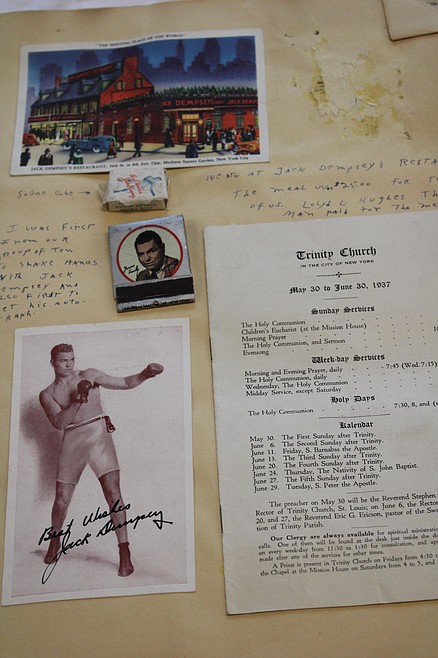 "THE MEETING PLACE OF THE WORLD"
JACK DEMPSEY'S
JACK DEMPSEY'S RESTAURANT, 50th St. at 8th Ave. Opp. Madison Square Garden, New York City
SUGAR CUBE →
WE ATE AT JACK DEMPSEY'S RESTA
THE MEAL WAS $25.00 FOR T
OF US. LOYD L HUGHES TH
MAN PAID FOR THE ME
I WAS FIRST
FROM OUR
GROUP OF TEN
TO SHAKE HANDS
WITH JACK
DEMPSEY AND
ALSO FIRST TO
GET HIS AUTO-
GRAPH.
Best Wishes
Jack Dempsey
Trinity Church
IN THE CITY OF NEW YORK
May 30 to June 30, 1937
Sunday Services
The Holy Communion
Children's Eucharist (at the Mission House)
Morning Prayer
The Holy Communion, and Sermon
Evensong
Week-day Services
Morning and Evening Prayer, daily 7:45 (Wed. 7:15)
The Holy Communion, daily
Wednesday, The Holy Communion
Midday Service, except Saturday
Holy Days
The Holy Communion 7:30, 8, and (
Kalendar
May 30. The First Sunday after Trinity.
June 6. The Second Sunday after Trinity.
June 11. Friday, S. Barnabas the Apostle.
June 13. The Third Sunday after Trinity.
June 20. The Fourth Sunday after Trinity.
June 24. Thursday, The Nativity of S. John Baptist.
June 27. The Fifth Sunday after Trinity.
June 29. Tuesday, S. Peter the Apostle.
The preacher on May 30 will be the Reverend Stephen
Rector of Trinity Church, St. Louis; on June 6, the Rector
20, and 27, the Reverend Eric G. Ericson, pastor of the Swe
tion of Trinity Parish.
Our Clergy are always available for spiritual ministratio
calls. One of them will be found at the desk just inside the do
on every week-day from 11:30 to 1:30 for consultation, and app
made after any of the services for other times.
A Priest is present in Trinity Church on Fridays from 4:30
the Chapel at the Mission House on Saturdays from 4 to 5, and